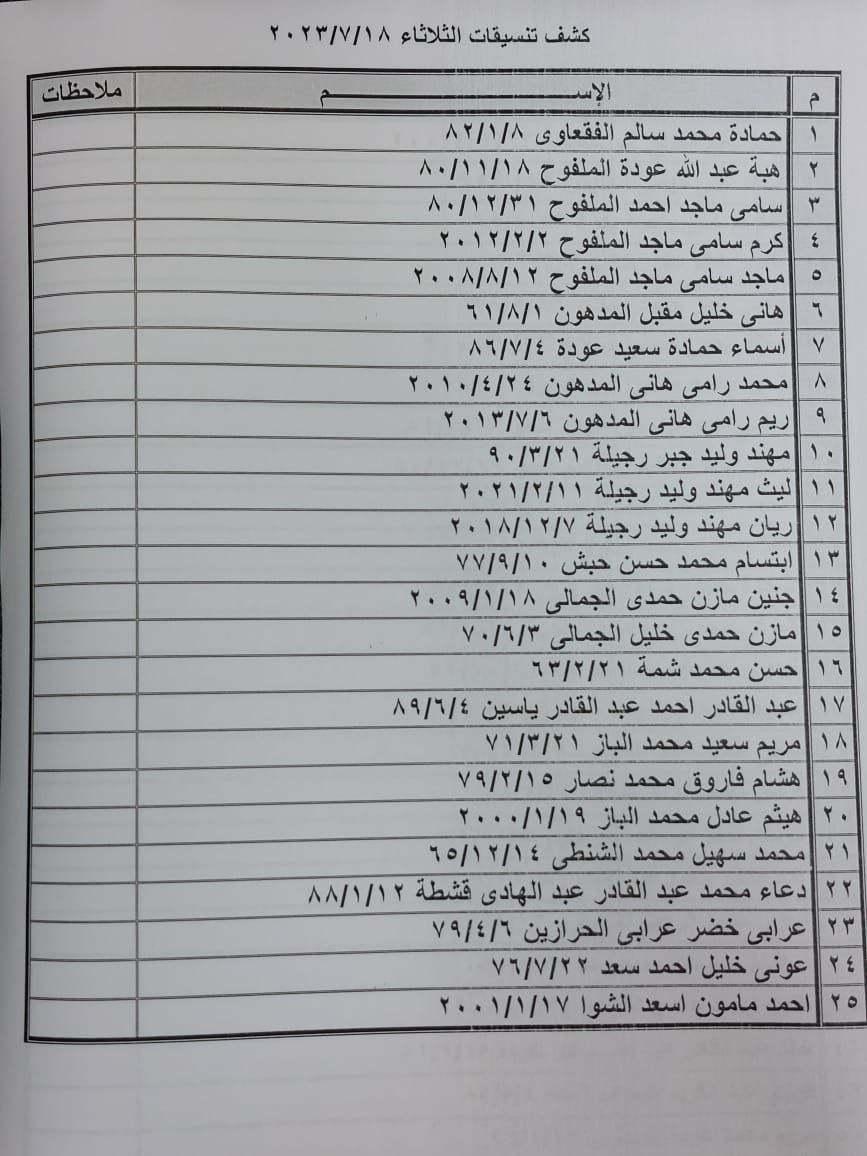 كشف تنسيقات الثلاثاء ٢٠٢٣/٧/١٨
م الإســـــــــم ملاحظات
١ حمادة محمد سالم الفقعاوى ٨٢/١/٨
٢ هبة عبد الله عودة الملفوح ٨٠/١١/١٨
٣ سامى ماجد احمد الملفوح ٨٠/١٢/٣١
٤ كرم سامى ماجد الملفوح ٢٠١٢/٢/٢
٥ ماجد سامى ماجد الملفوح ٢٠٠٨/٨/١٢
٦ هانى خليل مقبل المدهون ٦١/٨/١
٧ أسماء حمادة سعيد عودة ٨٦/٧/٤
٨ محمد رامى هانى المدهون ٢٠١٠/٤/٢٤
٩ ريم رامى هانى المدهون ٢٠١٣/٧/٦
١٠ مهند وليد جبر رجيلة ٩٠/٣/٢١
١١ ليث مهند وليد رجيلة ٢٠٢١/٢/١١
١٢ ريان مهند وليد رجيلة ٢٠١٨/١٢/٧
١٣ ابتسام محمد حسن حبش ٧٧/٩/١٠
١٤ جنين مازن حمدى الجمالى ٢٠٠٩/١/١٨
١٥ مازن حمدى خليل الجمالى ٧٠/٦/٣
١٦ حسن محمد شمة ٦٣/٢/٢١
١٧ عبد القادر احمد عبد القادر ياسين ٨٩/٦/٤
١٨ مريم سعيد محمد الباز ٧١/٣/٢١
١٩ هشام فاروق محمد نصار ٧٩/٢/١٥
٢٠ هيثم عادل محمد الباز ٢٠٠٠/١/١٩
٢١ محمد سهيل محمد الشنطى ٦٥/١٢/١٤
٢٢ دعاء محمد عبد القادر عبد الهادى قشطة ٨٨/١/١٢
٢٣ عرابى خضر عرابى الحرازين ٧٩/٤/٦
٢٤ عونى خليل احمد سعد ٧٦/٧/٢٢
٢٥ احمد مامون اسعد الشوا ٢٠٠١/١/١٧